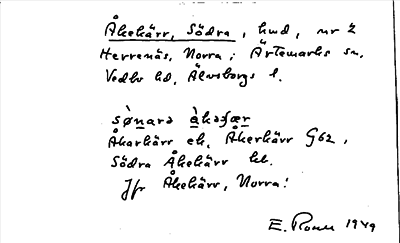 Åkekärr, Södra, hmd, nr 2
Herrenäs, Norra; Ärtemarks sn,
Vedbo hd, Älvsborgs l.
sø̀narə àkəʃær
Åkarkärr ek, Åkerkärr G62,
Södra Åkekärr kk.
Jfr Åkekärr, Norra!
E. 1949